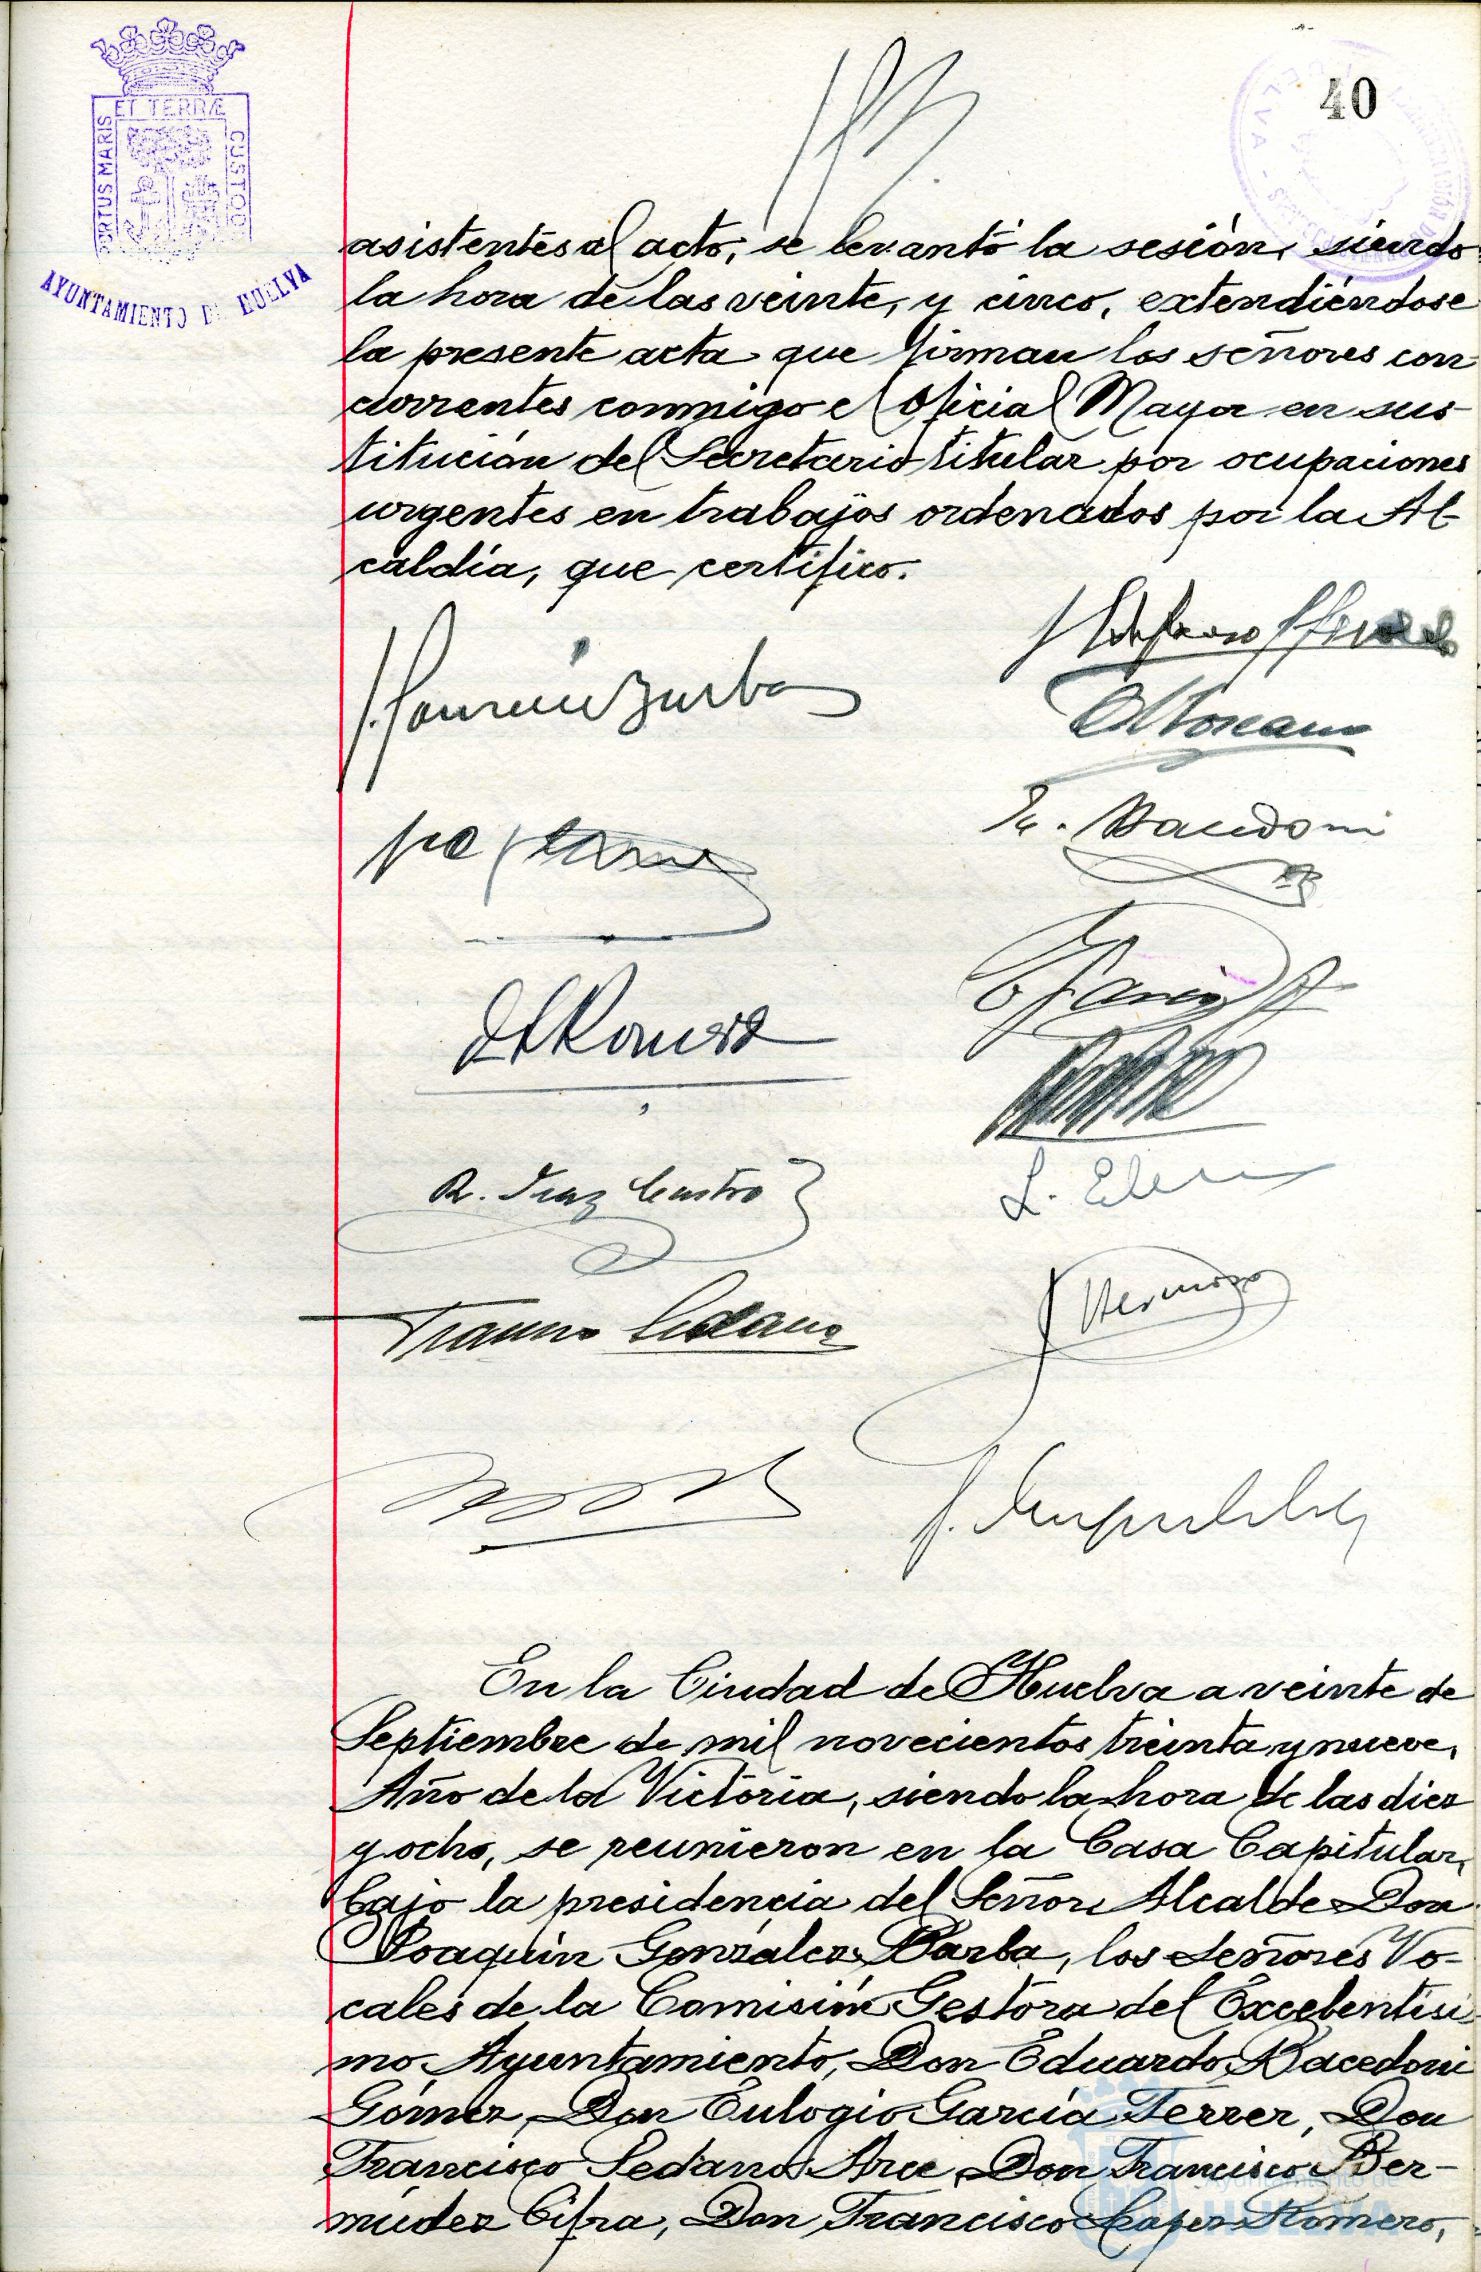 40
PORTUS MARIS ET TERRÆ CUSTOD
AYUNTAMIENTO DE HUELVA
asistentes al acto, se levantó la sesión, siendo
la hora de las veinte, y cinco, extendiéndose
la presente acta que firman los señores con-
currentes conmigo el Oficial Mayor en sus-
titución del Secretario titular por ocupaciones
urgentes en trabajos ordenados por la Al-
caldía, que certifico.
R. Díaz Castro
Sedano
Hermoso
En la Ciudad de Huelva a veinte de
Septiembre de mil novecientos treinta y nueve,
Año de la Victoria, siendo la hora de las diez
y ocho, se reunieron en la Casa Capitular,
bajo la presidencia del Señor Alcalde Don
Joaquín González Barba, los Señores Vo-
cales de la Comisión Gestora del Excelentísi-
mo Ayuntamiento, Don Eduardo Bacedoni
Gómez, Don Eulogio García Ferrer, Don
Francisco Sedano Arce, Don Francisco Ber-
múdez Cifra, Don Francisco Romero,
Ayuntamiento de
HUELVA